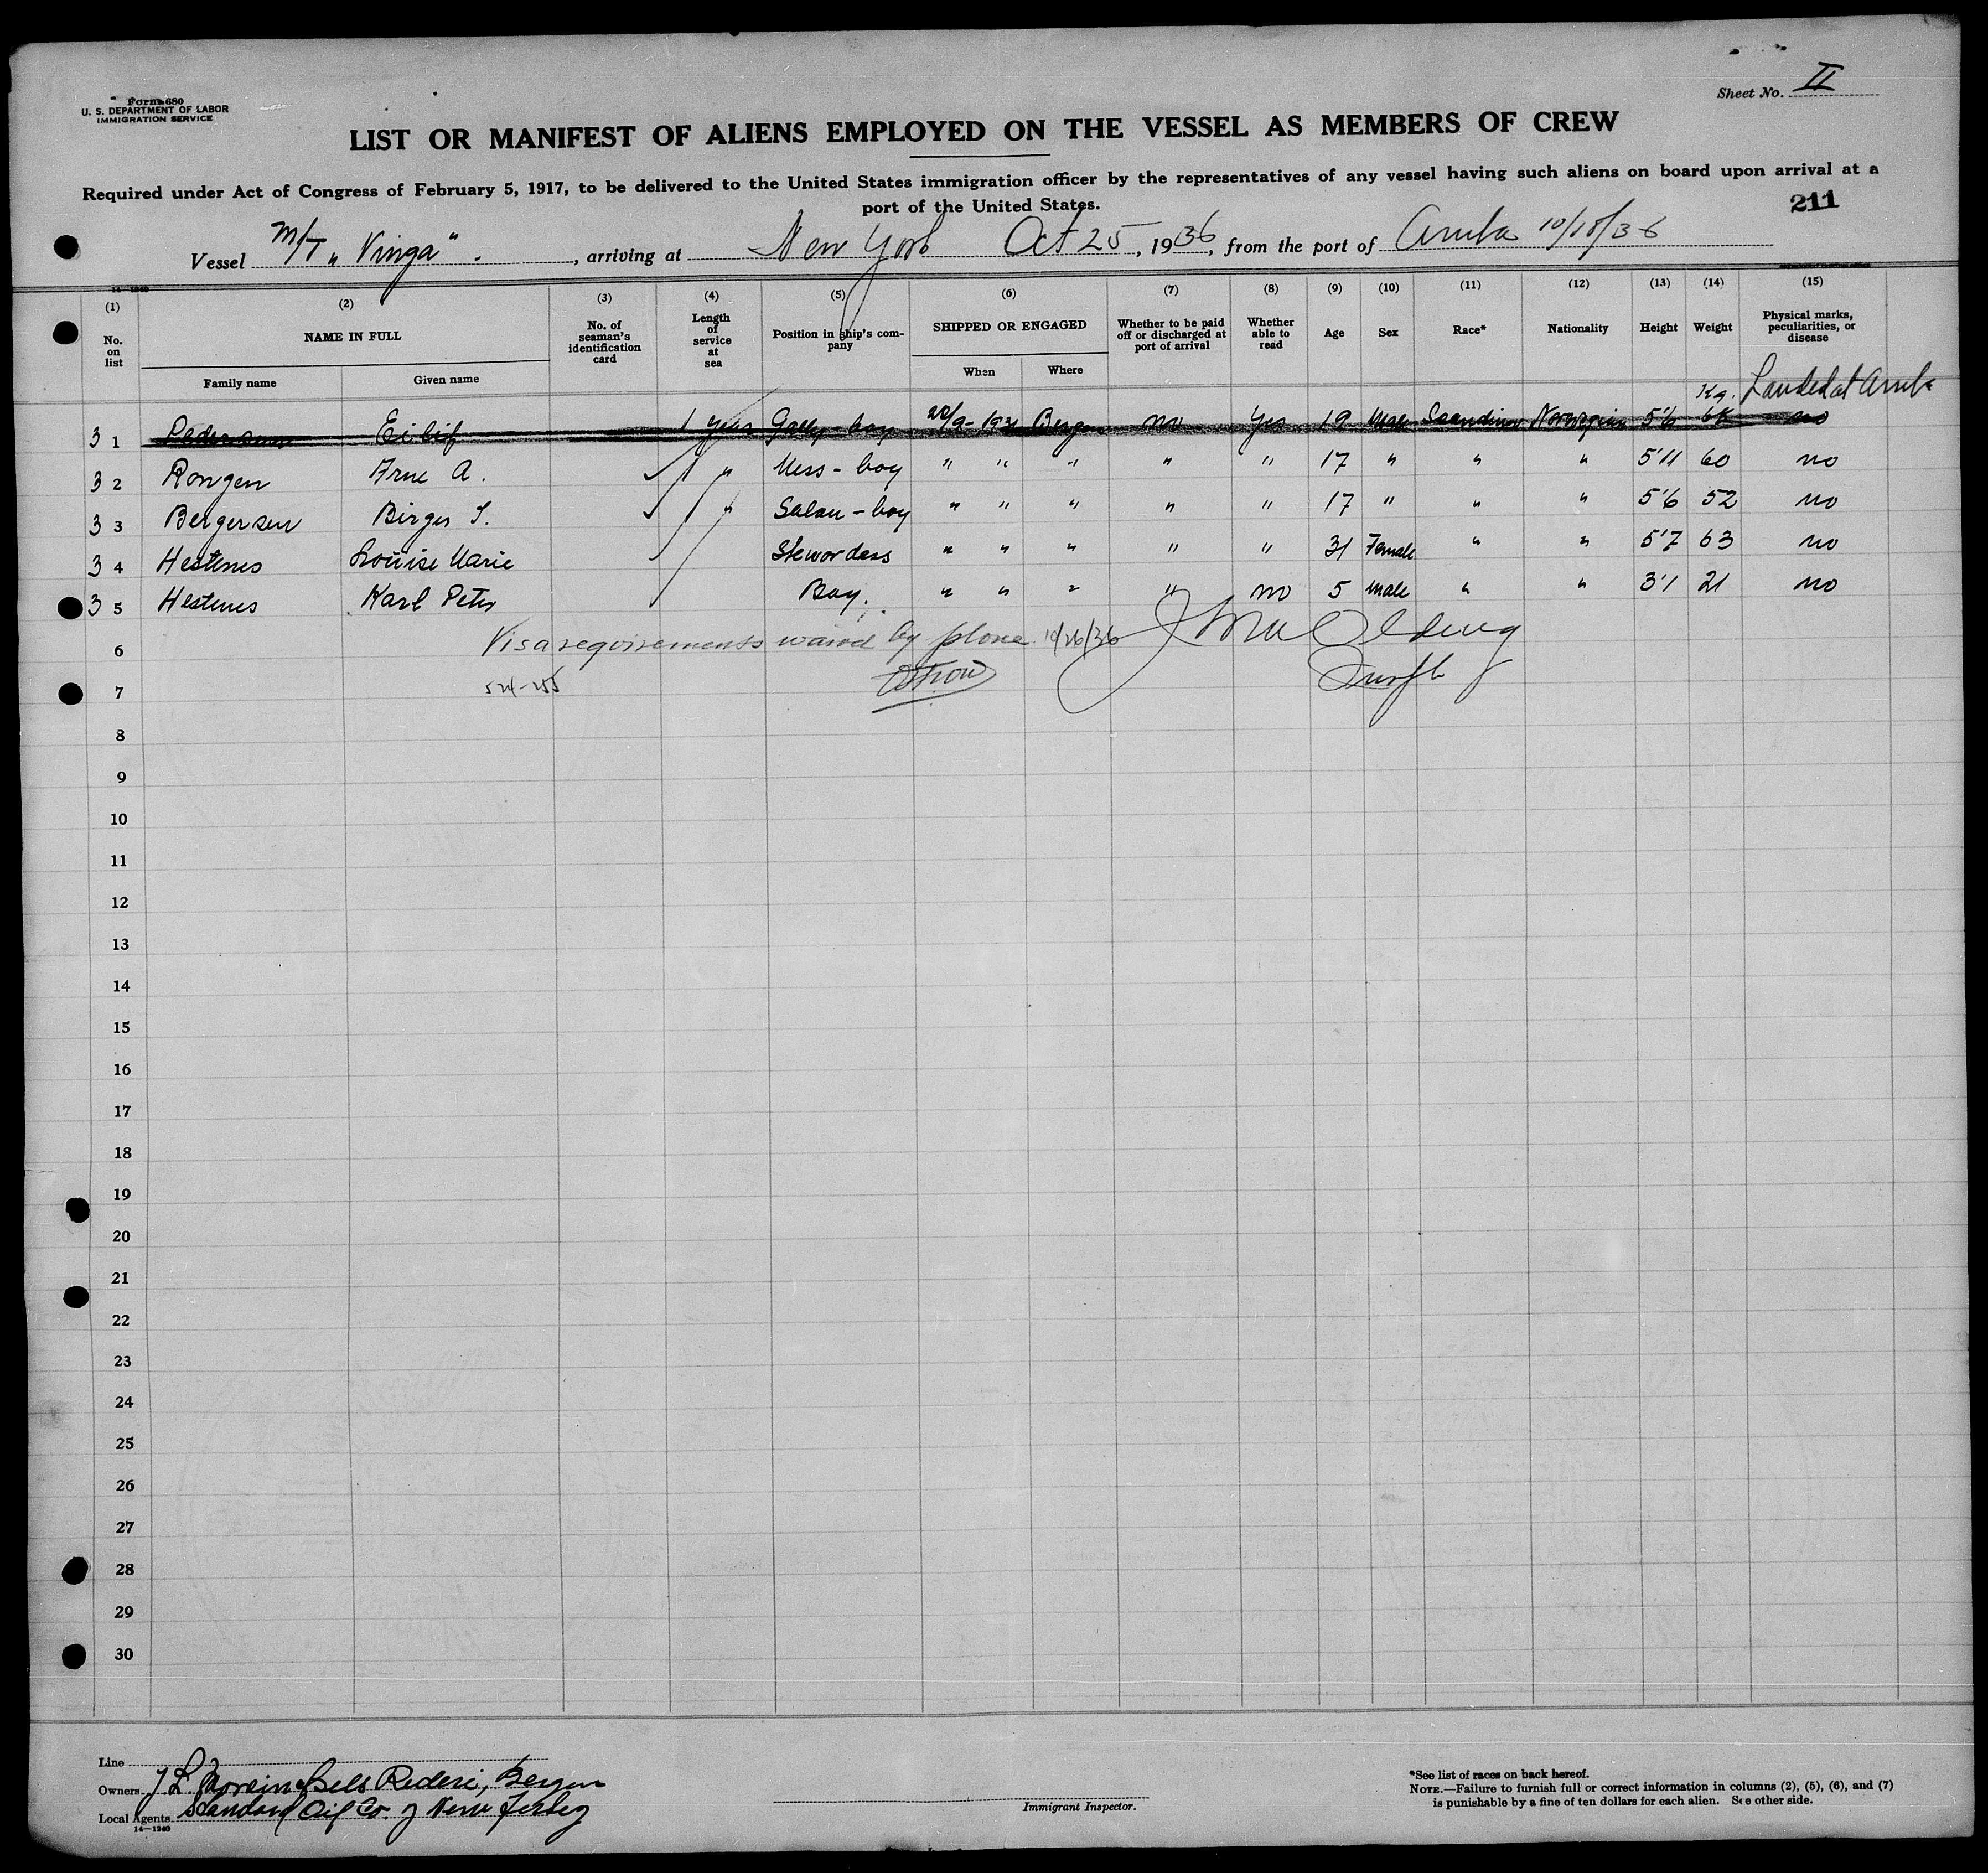 Form 680
U. S. DEPARTMENT OF LABOR
IMMIGRATION SERVICE
Sheet No. II
LIST OR MANIFEST OF ALIENS EMPLOYED ON THE VESSEL AS MEMBERS OF CREW
Required under Act of Congress of February 5, 1917, to be delivered to the United States immigration officer by the representatives of any vessel having such aliens on board upon arrival at a
port of the United States.
211
Vessel M/T „Vinga“. , arriving at New York Oct 25, 1936, from the port of Aruba 10/18/36
(1) (2) (3) (4) (5) (6) (7) (8) (9) (10) (11) (12) (13) (14) (15)
No. on list NAME IN FULL No. of seaman's identification card Length of service at sea Position in ship's company SHIPPED OR ENGAGED Whether to be paid off or discharged at port of arrival Whether able to read Age Sex Race* Nationality Height Weight Physical marks, peculiarities, or disease
Family name Given name When Where
Kg. Landed at Aruba
3 1 Pedersen Eilif 1 year Gally-boy Bergen no Yes 19 Male Scandinav Norwegian 5'6 no
3 2 Rongen Arne A. 1 " Mess-boy " " " " " 17 " " " 5'11 60 no
3 3 Bergersen Birger S. 1 " Salon-boy " " " " " 17 " " " 5'6 52 no
3 4 Hestenes Louise Marie Stewordess " " " " " 31 Female " " 5'7 63 no
3 5 Hestenes Karl Peter Boy. " " " " no 5 male " " 3'1 21 no
6 Visa requirements waived by phone 10/26/36
7
8
9
10
11
12
13
14
15
16
17
18
19
20
21
22
23
24
25
26
27
28
29
30
Line
Owners Rederi, Bergen
Local Agents Standard Oil Co. of New Jersey
14—1240
Immigrant Inspector.
*See list of races on back hereof.
NOTE.—Failure to furnish full or correct information in columns (2), (5), (6), and (7)
is punishable by a fine of ten dollars for each alien. See other side.